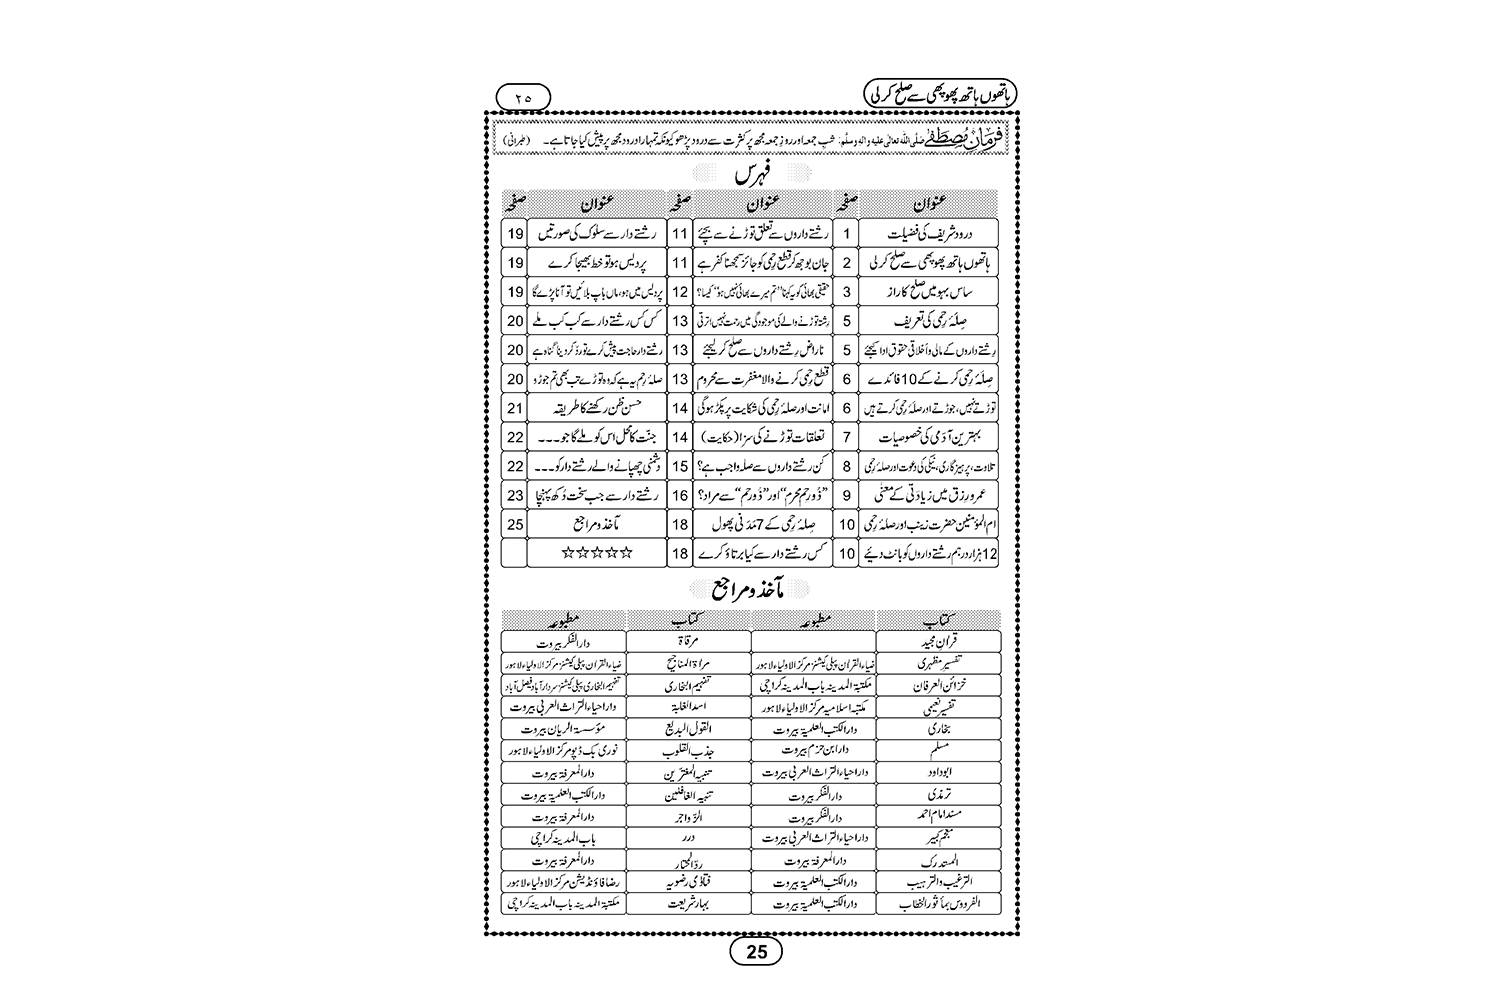 ہاتھوں ہاتھ پھوپھی سے صلح کرلی ۲۵
فرمانِ مصطفٰے صلَّی اللہ تعالٰی علیہ واٰلہٖ وسلَّم: شبِ جمعہ اور روزِ جمعہ مجھ پر کثرت سے درود پڑھو کیونکہ تمہارا درود مجھ پر پیش کیا جاتا ہے۔ (طبرانی)
فہرس
عنوان صفحہ عنوان صفحہ عنوان صفحہ
درود شریف کی فضیلت 1 رشتے داروں سے تعلق توڑنے سے بچئے 11 رشتے دار سے سلوک کی صورتیں 19
ہاتھوں ہاتھ پھوپھی سے صلح کرلی 2 جان بوجھ کر قطعِ رحمی کو جائز سمجھنا کفر ہے 11 پردیس ہو تو خط بھیجا کرے 19
ساس بہو میں صلح کا راز 3 حقیقی بھائی کو یہ کہنا ”تم میرے بھائی نہیں ہو“ کیسا؟ 12 پردیس میں ہو، ماں باپ بلائیں تو آنا پڑے گا 19
صِلۂ رِحمی کی تعریف 5 رشتہ توڑنے والے کی موجودگی میں رحمت نہیں اترتی 13 کس کس رشتے دار سے کب کب ملے 20
رشتے داروں کے مالی و اَخلاقی حقوق ادا کیجئے 5 ناراض رشتے داروں سے صلح کر لیجئے 13 رشتے دار حاجت پیش کرے تو رد کر دینا گناہ ہے 20
صِلَۂ رِحمی کرنے کے 10 فائدے 6 قطعِ رحمی کرنے والا مغفرت سے محروم 13 صلۂ رحم یہ ہے کہ وہ توڑے تب بھی تم جوڑو 20
توڑتے نہیں، جوڑتے اور صلۂ رِحمی کرتے ہیں 6 امانت اور صلۂ رِحمی کی شکایت پر پکڑ ہوگی 14 حسنِ ظن رکھنے کا طریقہ 21
بہترین آدَمی کی خصوصیات 7 تعلقات توڑنے کی سزا (حکایت) 14 جنّت کا محل اس کو ملے گا جو۔۔۔ 22
تلاوت، پرہیزگاری، نیکی کی دعوت اور صلۂ رحمی 8 کن رشتے داروں سے صلہ واجب ہے؟ 15 دشمنی چھپانے والے رشتے دار کو۔۔۔ 22
عمر و رزق میں زیادَتی کے معنٰی 9 ”ذُو رحم محرم“ اور ”ذُو رحم“ سے مراد؟ 16 رشتے دار سے جب سخت دُکھ پہنچا 23
ام المؤمنین حضرت زینب اور صلۂ رحمی 10 صِلۂ رحمی کے 7 مَدَنی پھول 18 مآخذ و مراجع 25
12 ہزار درہم رشتے داروں کو بانٹ دئیے 10 کس رشتے دار سے کیا برتاؤ کرے 18 ☆☆☆☆☆
مآخذ و مراجع
کتاب مطبوعہ کتاب مطبوعہ
قرانِ مجید مرقاۃ دارالفکر بیروت
تفسیر مظہری ضیاء القران پبلی کیشنز مرکز الاولیاء لاہور مراۃ المناجیح ضیاء القران پبلی کیشنز مرکز الاولیاء لاہور
خزائن العرفان مکتبۃ المدینہ باب المدینہ کراچی تفہیم البخاری تفہیم البخاری پبلی کیشنز سردار آباد فیصل آباد
تفسیر نعیمی مکتبہ اسلامیہ مرکز الاولیاء لاہور اسد الغابۃ دار احیاء التراث العربی بیروت
بخاری دار الکتب العلمیۃ بیروت القول البدیع مؤسسۃ الریان بیروت
مسلم دار ابن حزم بیروت جذب القلوب نوری بک ڈپو مرکز الاولیاء لاہور
ابوداود دار احیاء التراث العربی بیروت تنبیہ المغترین دار المعرفۃ بیروت
ترمذی دار الفکر بیروت تنبیہ الغافلین دار الکتب العلمیۃ بیروت
مسند امام احمد دار الفکر بیروت الزواجر دار المعرفۃ بیروت
معجم کبیر دار احیاء التراث العربی بیروت درر باب المدینہ کراچی
المستدرک دار المعرفۃ بیروت ردّ المحتار دار المعرفۃ بیروت
الترغیب والترہیب دار الکتب العلمیۃ بیروت فتاوٰی رضویہ رضا فاؤنڈیشن مرکز الاولیاء لاہور
الفردوس بمأثور الخطاب دار الکتب العلمیۃ بیروت بہار شریعت مکتبۃ المدینہ باب المدینہ کراچی
25